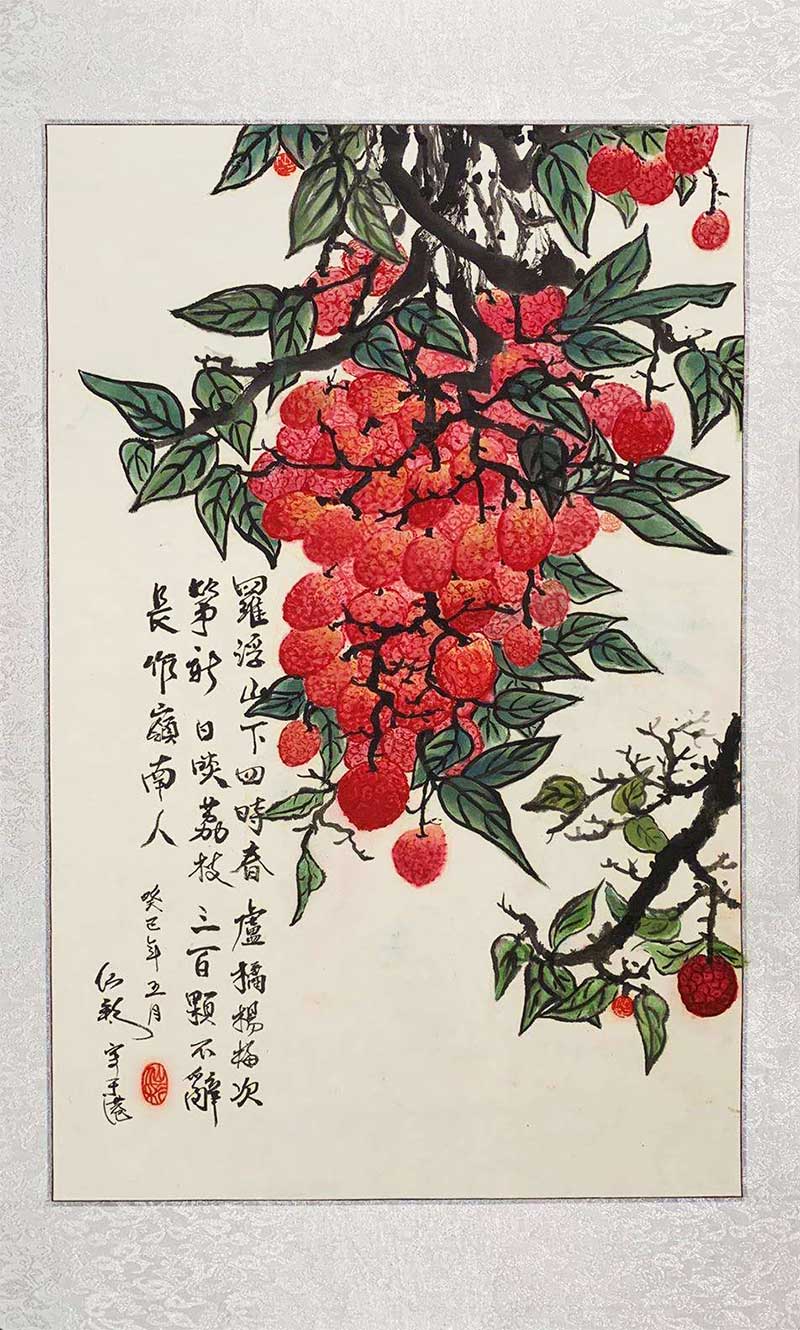 羅浮山下四時春盧橘楊梅次
第新日啖荔枝三百顆不辭
長作嶺南人
癸巳年五月